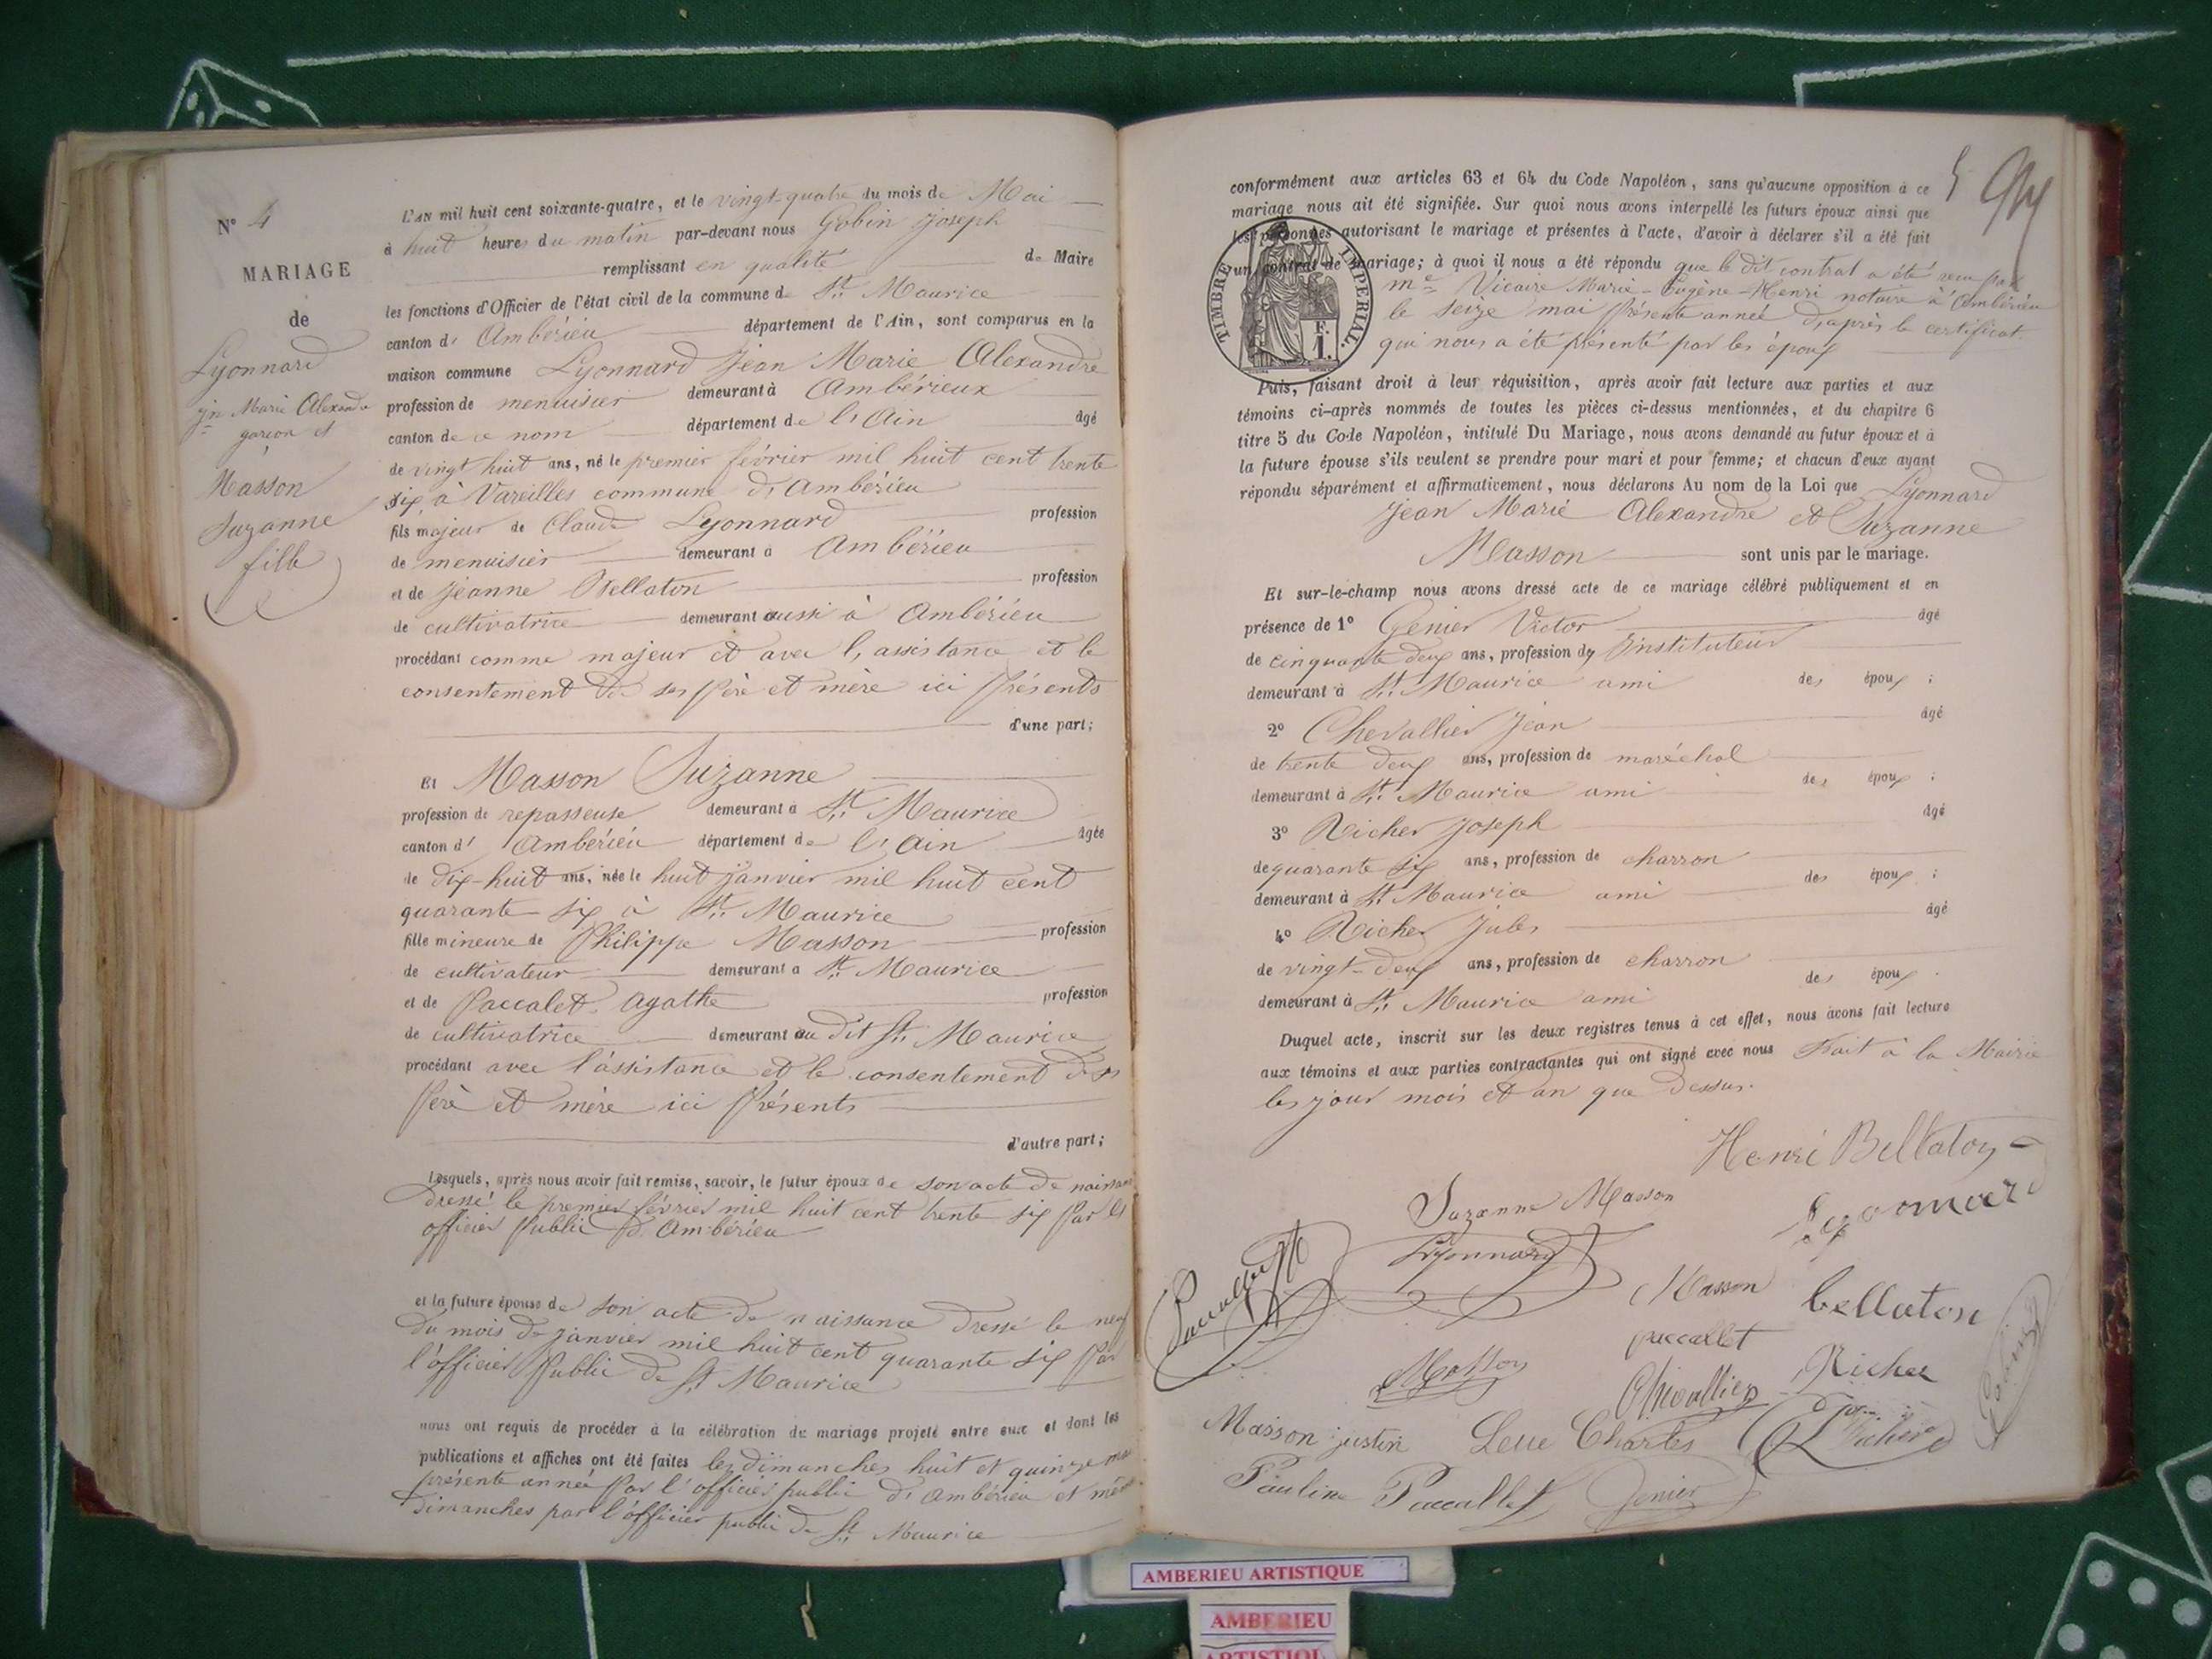 N° 4
MARIAGE
de
Lyonnard
jn Marie Alexandre
garçon et
Masson
Suzanne
fille
L'AN mil huit cent soixante-quatre, et le vingt-quatre du mois de Mai
à huit heures du matin par-devant nous Gobin Joseph
remplissant en qualité de Maire
les fonctions d'Officier de l'état civil de la commune de St. Maurice
canton d' Ambérieu département de l'Ain, sont comparus en la
maison commune Lyonnard Jean Marie Alexandre
profession de menuisier demeurant à Ambérieux
canton de ce nom département de l'Ain âgé
de vingt huit ans, né le premier février mil huit cent trente
six à Vareilles commune d'Ambérieu
fils majeur de Claude Lyonnard profession
de menuisier demeurant à Ambérieu
et de Jeanne Bellaton profession
de cultivatrice demeurant aussi à Ambérieu
procédant comme majeur et avec l'assistance et le
consentement de ses père et mère ici présents
d'une part;
Et Masson Suzanne
profession de repasseuse demeurant à St. Maurice
canton d' Ambérieu département de l'Ain âgée
de dix-huit ans, née le huit janvier mil huit cent
quarante six à St. Maurice
fille mineure de Philippe Masson profession
de cultivateur demeurant à St. Maurice
et de Paccalet Agathe profession
de cultivatrice demeurant au dit St. Maurice
procédant avec l'assistance et le consentement de ses
père et mère ici présents
d'autre part;
Lesquels, après nous avoir fait remise, savoir, le futur époux de son acte de naissance
dressé le premier février mil huit cent trente six par les
officier public d'Ambérieu
et la future épouse de son acte de naissance dressé le neuf
du mois de janvier mil huit cent quarante six par
l'officier public de St Maurice
nous ont requis de procéder à la célébration du mariage projeté entre eux et dont les
publications et affiches ont été faites les dimanches huit et quinze mai
présente année par l'officier public d'Ambérieu et même
dimanches par l'officier public de St. Maurice
conformément aux articles 63 et 64 du Code Napoléon, sans qu'aucune opposition à ce
mariage nous ait été signifiée. Sur quoi nous avons interpellé les futurs époux ainsi que
les personnes autorisant le mariage et présentes à l'acte, d'avoir à déclarer s'il a été fait
un contrat de mariage; à quoi il nous a été répondu que le dit contrat a été reçu par
me Vicaire Marie-Eugène-Henri notaire à Ambérieu
le seize mai présente année d'après le certificat
qui nous a été présenté par les époux
TIMBRE IMPERIAL.
F.
1.
Puis, faisant droit à leur réquisition, après avoir fait lecture aux parties et aux
témoins ci-après nommés de toutes les pièces ci-dessus mentionnées, et du chapitre 6
titre 5 du Code Napoléon, intitulé Du Mariage, nous avons demandé au futur époux et à
la future épouse s'ils veulent se prendre pour mari et pour femme; et chacun d'eux ayant
répondu séparément et affirmativement, nous déclarons Au nom de la Loi que Lyonnard
Jean Marie Alexandre et Suzanne
Masson sont unis par le mariage.
Et sur-le-champ nous avons dressé acte de ce mariage célébré publiquement et en
présence de 1° Genier Victor âgé
de cinquante deux ans, profession d' Instituteur
demeurant à St. Maurice ami des époux;
2° Chevallier Jean âgé
de trente deux ans, profession de maréchal
demeurant à St. Maurice ami des époux;
3° Richer Joseph âgé
de quarante six ans, profession de charron
demeurant à St. Maurice ami des époux;
4° Richer Jules âgé
de vingt-deux ans, profession de charron
demeurant à St. Maurice ami des époux.
Duquel acte, inscrit sur les deux registres tenus à cet effet, nous avons fait lecture
aux témoins et aux parties contractantes qui ont signé avec nous Fait à la Mairie
les jour mois et an que dessus.
Henri Bellaton
Suzanne Masson
Lyonnard
Masson
bellaton
paccallet
Masson
Chevallier
Richer
Masson justin
Charles
Pauline Paccallet
Genier
AMBERIEU ARTISTIQUE
AMBERIEU